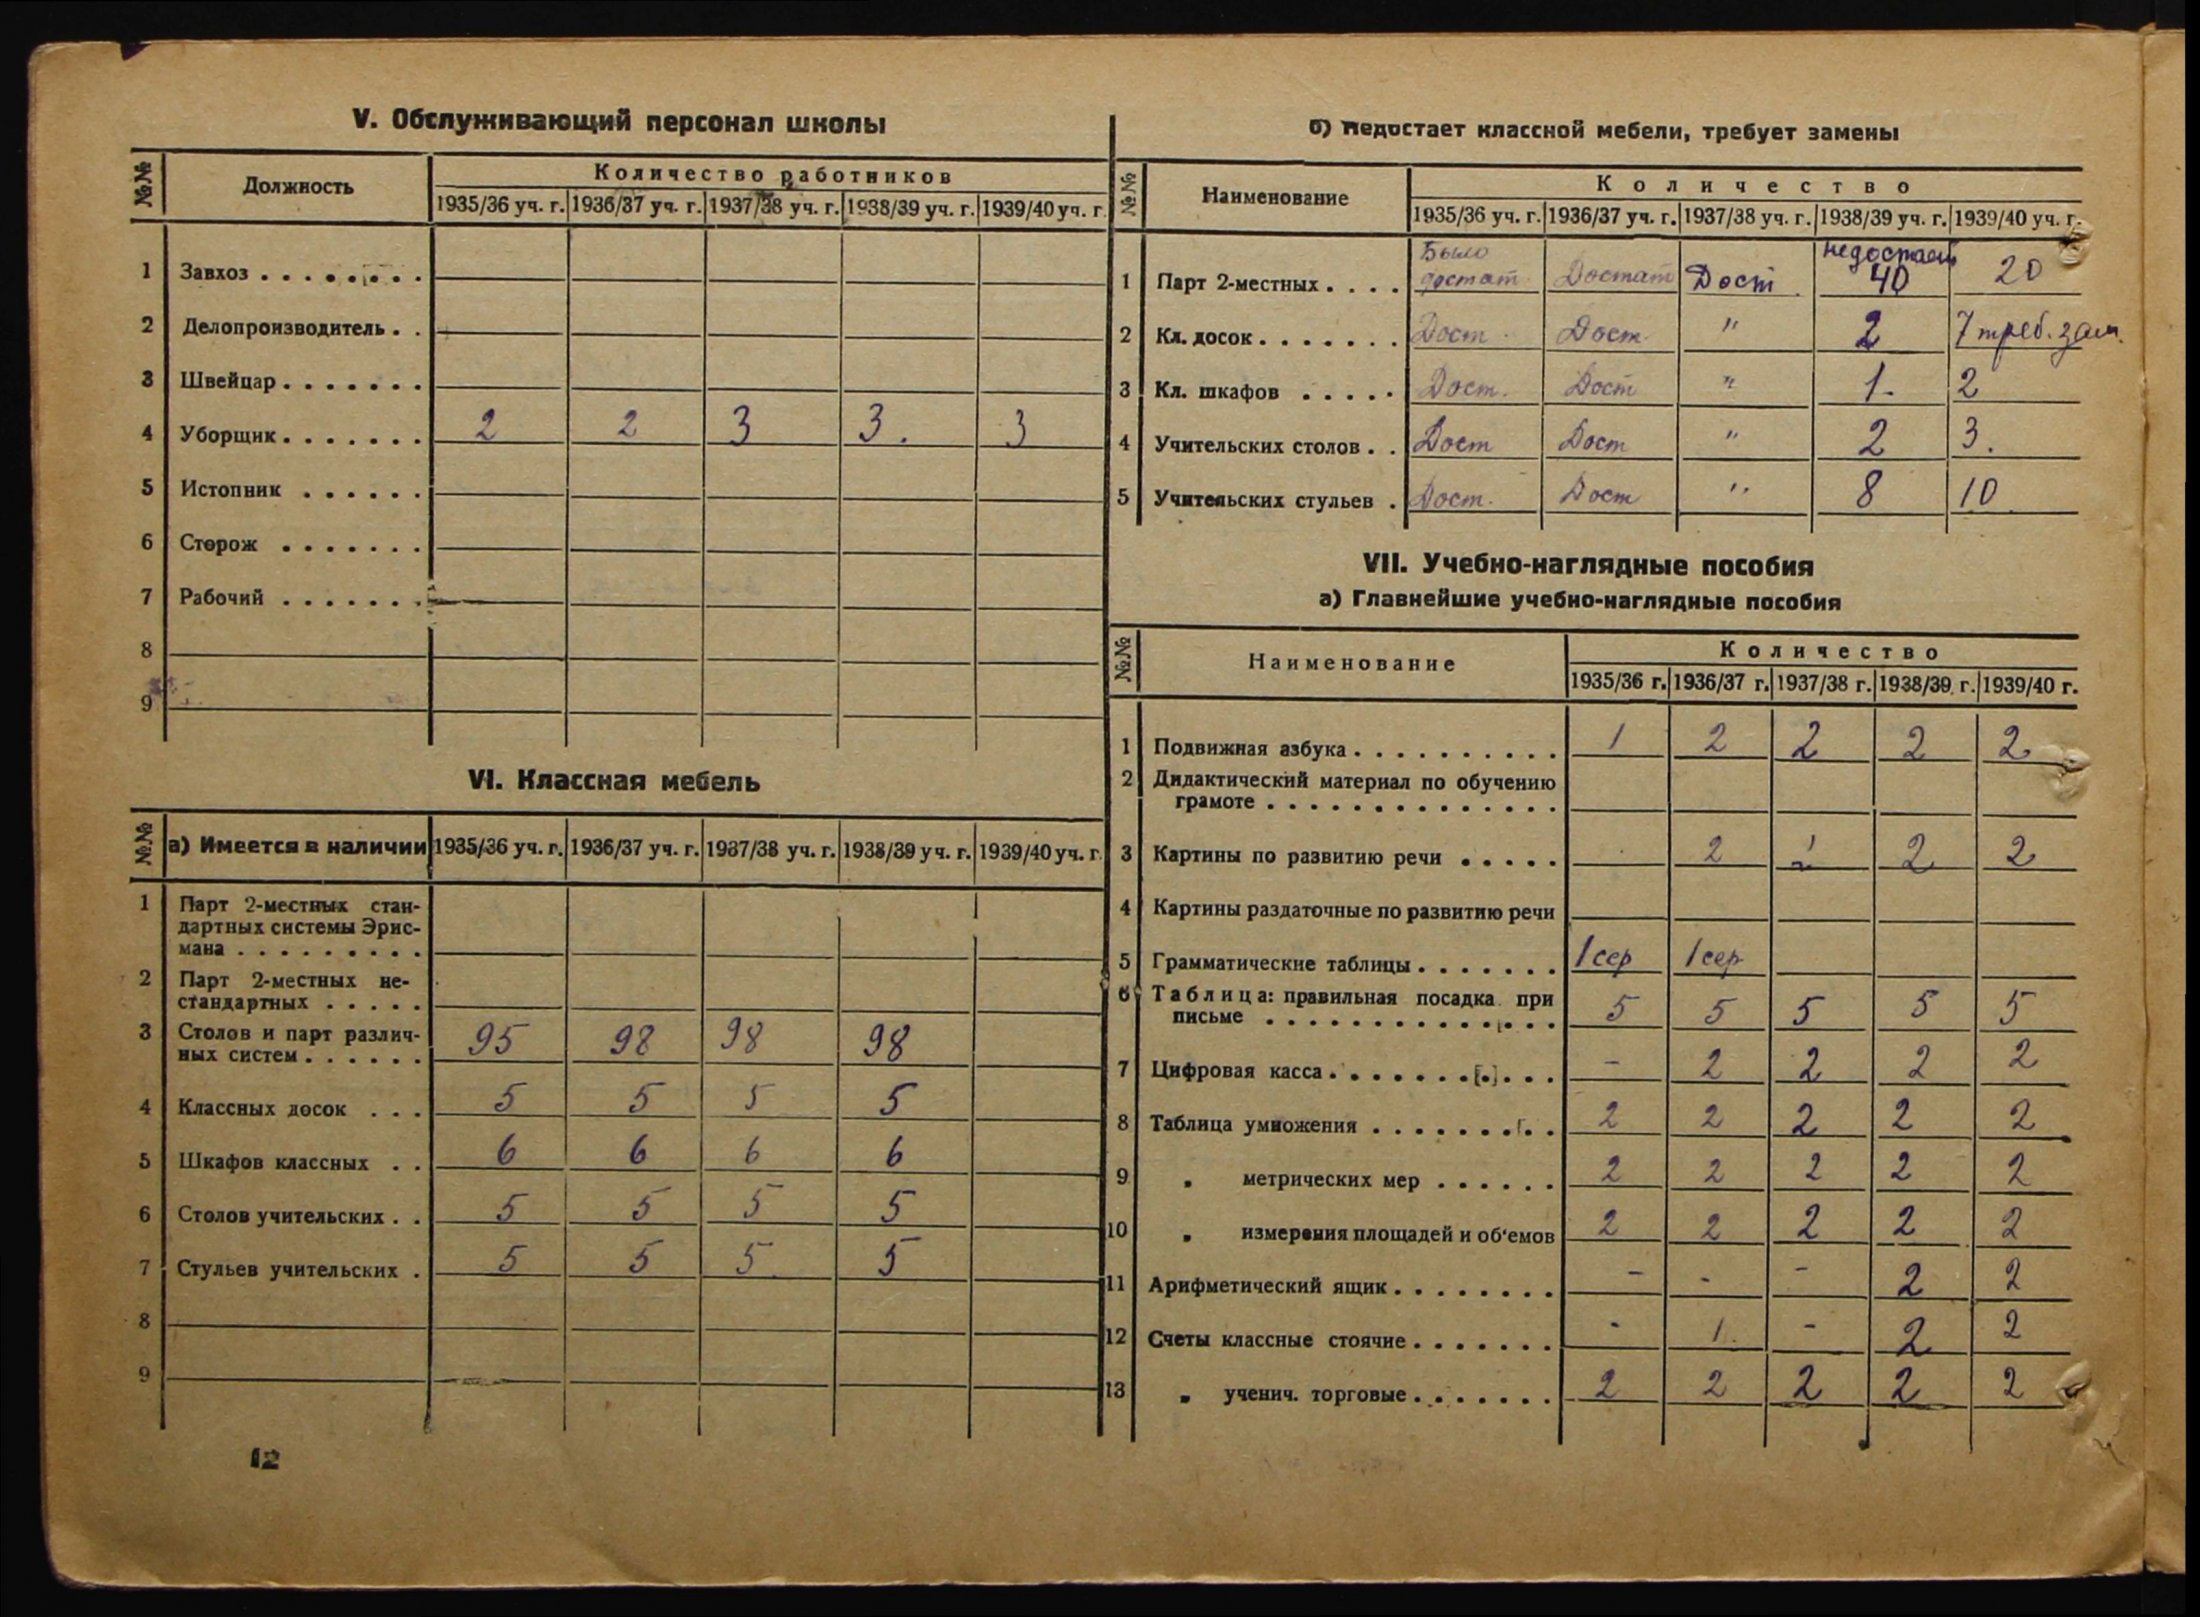 V. Обслуживающий персонал школы
№№ Должность Количество работников
1935/36 уч. г. 1936/37 уч. г. 1937/38 уч. г. 1938/39 уч. г. 1939/40 уч. г.
1 Завхоз . . . . . . . .
2 Делопроизводитель . .
3 Швейцар . . . . . . .
4 Уборщик . . . . . . . 2 2 3 3. 3
5 Истопник . . . . . .
6 Сторож . . . . . . .
7 Рабочий . . . . . . .
8
9
VI. Классная мебель
№№ а) Имеется в наличии 1935/36 уч. г. 1936/37 уч. г. 1937/38 уч. г. 1938/39 уч. г. 1939/40 уч. г.
1 Парт 2-местных стан-
дартных системы Эрис-
мана . . . . . . . . .
2 Парт 2-местных не-
стандартных . . . . .
3 Столов и парт различ-
ных систем . . . . . . 95 98 98 98
4 Классных досок . . . 5 5 5 5
5 Шкафов классных . . 6 6 6 6
6 Столов учительских . . 5 5 5 5
7 Стульев учительских . 5 5 5 5
8
9
12
б) Недостает классной мебели, требует замены
№№ Наименование Количество
1935/36 уч. г. 1936/37 уч. г. 1937/38 уч. г. 1938/39 уч. г. 1939/40 уч. г.
Было недостает
1 Парт 2-местных . . . . достат. Достат Дост. 40 20
2 Кл. досок . . . . . . . Дост. Дост. " 2 7 треб. зам.
3 Кл. шкафов . . . . . Дост. Дост " 1. 2
4 Учительских столов . . Дост Дост " 2 3.
5 Учительских стульев . Дост. Дост " 8 10.
VII. Учебно-наглядные пособия
а) Главнейшие учебно-наглядные пособия
№№ Наименование Количество
1935/36 г. 1936/37 г. 1937/38 г. 1938/39 г. 1939/40 г.
1 Подвижная азбука . . . . . . . . . . 1 2 2 2 2
2 Дидактический материал по обучению
грамоте . . . . . . . . . . . . . .
3 Картины по развитию речи . . . . . 2 2 2
4 Картины раздаточные по развитию речи
5 Грамматические таблицы . . . . . . . 1 сер 1 сер.
6 Таблица: правильная посадка при
письме . . . . . . . . . . . . . . 5 5 5 5 5
7 Цифровая касса . . . . . . . . . . . – 2 2 2 2
8 Таблица умножения . . . . . . . . . 2 2 2 2 2
9 „ метрических мер . . . . . . 2 2 2 2 2
10 „ измерения площадей и об‘емов 2 2 2 2 2
11 Арифметический ящик . . . . . . . . – - – 2 2
12 Счеты классные стоячие . . . . . . . - 1. – 2 2
13 „ ученич. торговые . . . . . . . 2 2 2 2 2